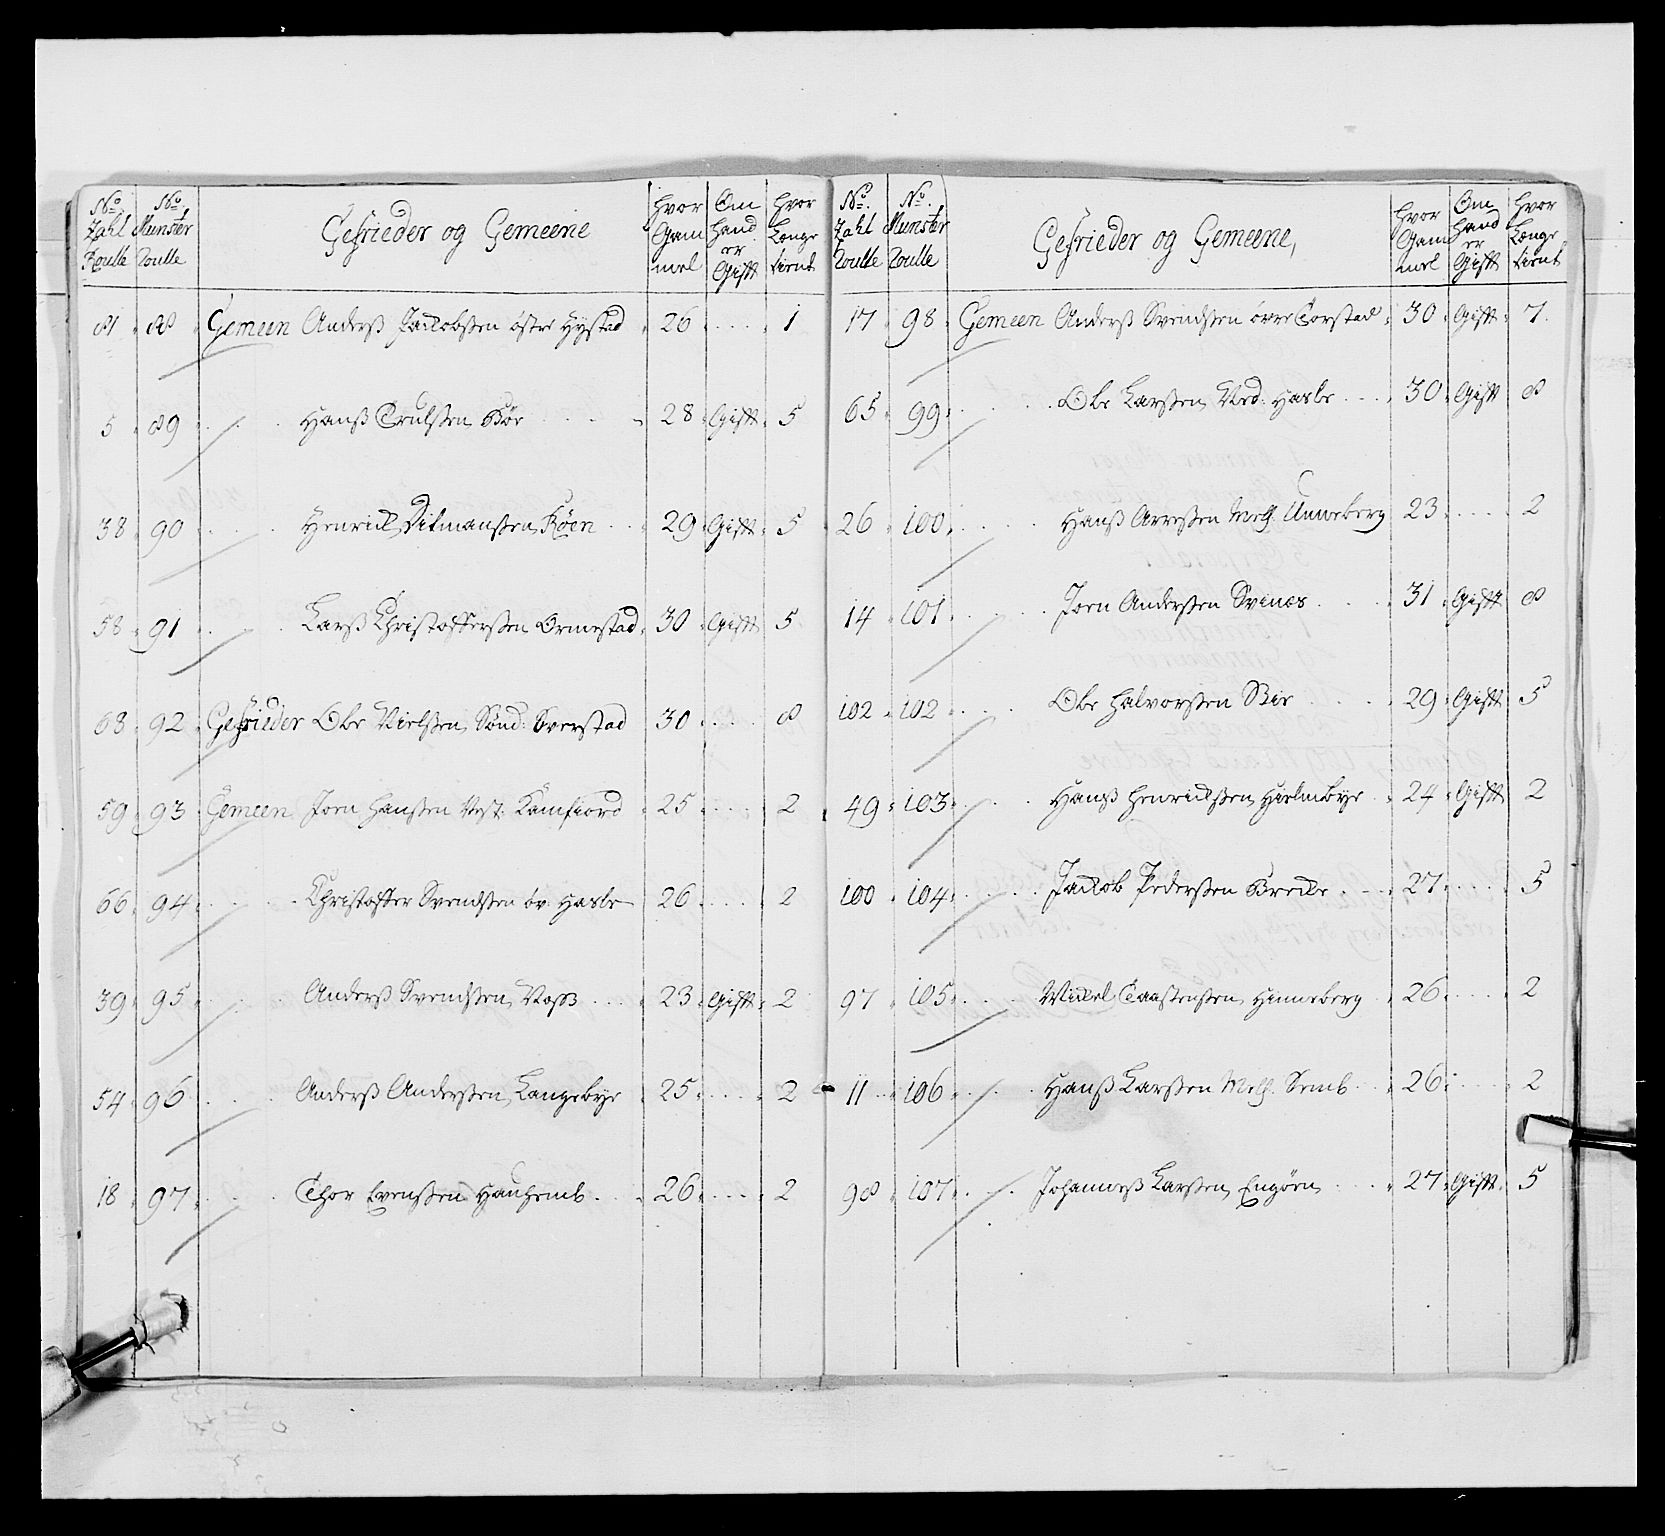 No. Zahl Roulle | No. Munster Roulle | Gefrieder og Gemeene | Hvor Gammel | Om hand er Gifft | Hvor Længe tient
81 88 Gemeen Anders Jackobsen östre Hystad 26 1
5 89 Hans Trulsen Bör 28 Gifft 5
38 90 Henrick Ditmansen Röen 29 Gifft 5
58 91 Lars Christoffersen Ormestad 30 Gifft 5
68 92 Gefrieder Ole Nielsen Sönd: Sverstad 30 8
59 93 Gemeen Joen Hansen Vest: Kamfiord 25 2
66 94 Christoffer Svendsen öv: Hasle 26 2
39 95 Anders Svendsen Voss 23 Gifft 2
54 96 Anders Andersen Langebye 25 2
18 97 Thor Evensen Hauhemb 26 2
No. Zahl Roulle | No. Munster Roulle | Gefrieder og Gemeene, | Hvor Gammel | Om hand er Gifft | Hvor Længe tient
17 98 Gemeen Anders Svendsen övre Torstad 30 Gifft 7
65 99 Ole Larsen Ned: Hasle 30 Gifft 8
26 100 Hans Arresen Mell. Unneberg 23 2
14 101 Joen Andersen Svines 31 Gifft 8
102 102 Ole Halvorsen Bir 29 Gifft 5
49 103 Hans Henricksen Hielmbye 24 Gifft 2
100 104 Jackob Pedersen Brecke 27 5
97 105 Mickel Taastensen Hinneberg 26 2
11 106 Hans Larsen Mell. Semb 26 2
98 107 Johannes Larsen Engöen 27 Gifft 5